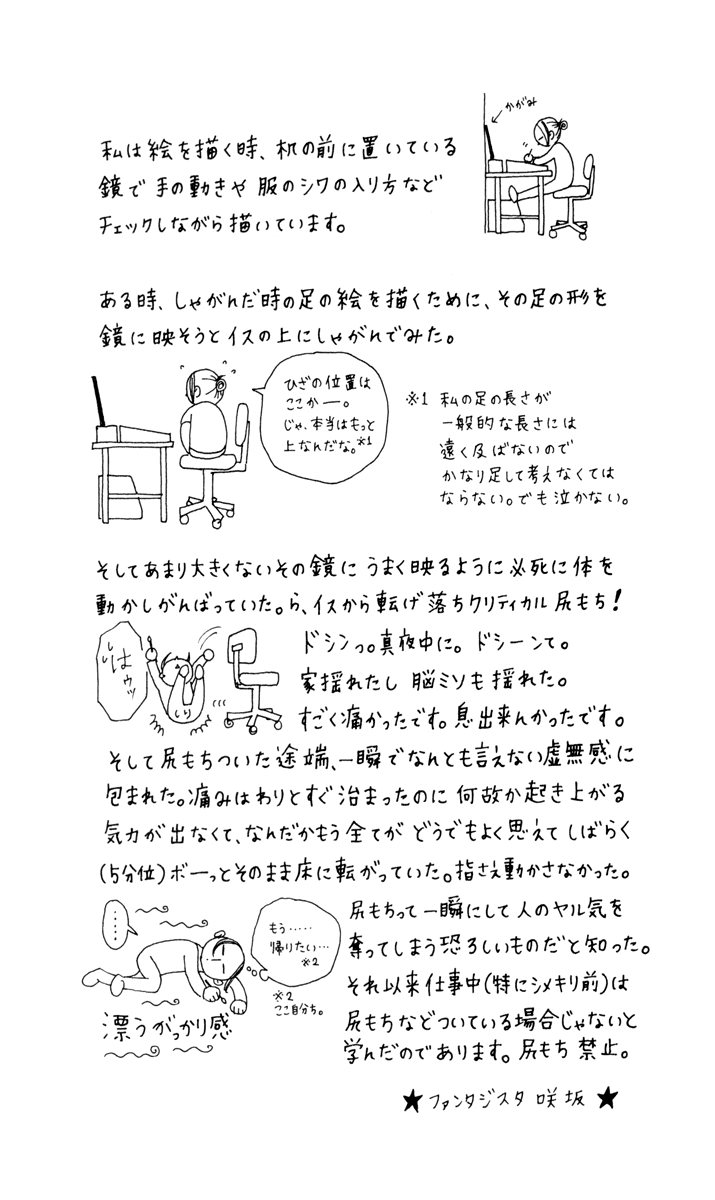 かがみ
私は絵を描く時、机の前に置いている
鏡で手の動きや服のシワの入り方など
チェックしながら描いています。
ある時、しゃがんだ時の足の絵を描くために、その足の形を
鏡に映そうとイスの上にしゃがんでみた。
ひざの位置は
ここかー。
じゃ、本当はもっと
上なんだな。※1
※1 私の足の長さが
一般的な長さには
遠く及ばないので
かなり足して考えなくては
ならない。でも泣かない。
そしてあまり大きくないその鏡にうまく映るように必死に体を
動かしがんばっていた。ら、イスから転げ落ちクリティカル尻もち!
はウッ
しり
ドシンっ。真夜中に。ドシーンて。
家揺れたし脳ミソも揺れた。
すごく痛かったです。息出来んかったです。
そして尻もちついた途端、一瞬でなんとも言えない虚無感に
包まれた。痛みはわりとすぐ治まったのに何故か起き上がる
気力が出なくて、なんだかもう全てがどうでもよく思えてしばらく
(5分位)ボーっとそのまま床に転がっていた。指さえ動かさなかった。
……
もう……
帰りたい…
※2
※2
ここ自分ち。
漂うがっかり感
尻もちって一瞬にして人のヤル気を
奪ってしまう恐ろしいものだと知った。
それ以来仕事中(特にシメキリ前)は
尻もちなどついている場合じゃないと
学んだのであります。尻もち禁止。
★ファンタジスタ咲坂★